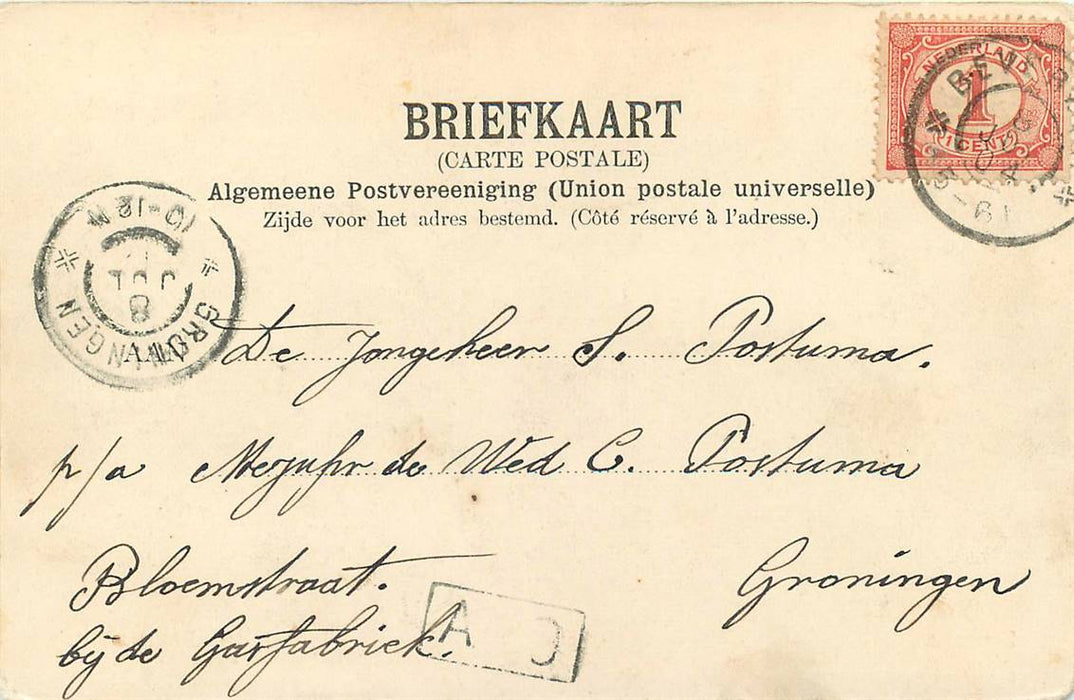 BRIEFKAART
(CARTE POSTALE)
Algemeene Postvereeniging (Union postale universelle)
Zijde voor het adres bestemd. (Côté réservé à l'adresse.)
NEDERLAND
1
1 CENT
10-12 M
JUL
8
GRONINGEN
De Jongeheer S. Postuma.
p/a Mejufr de Wed C. Postuma
Bloemstraat. Groningen
bij de Gasfabriek.
A